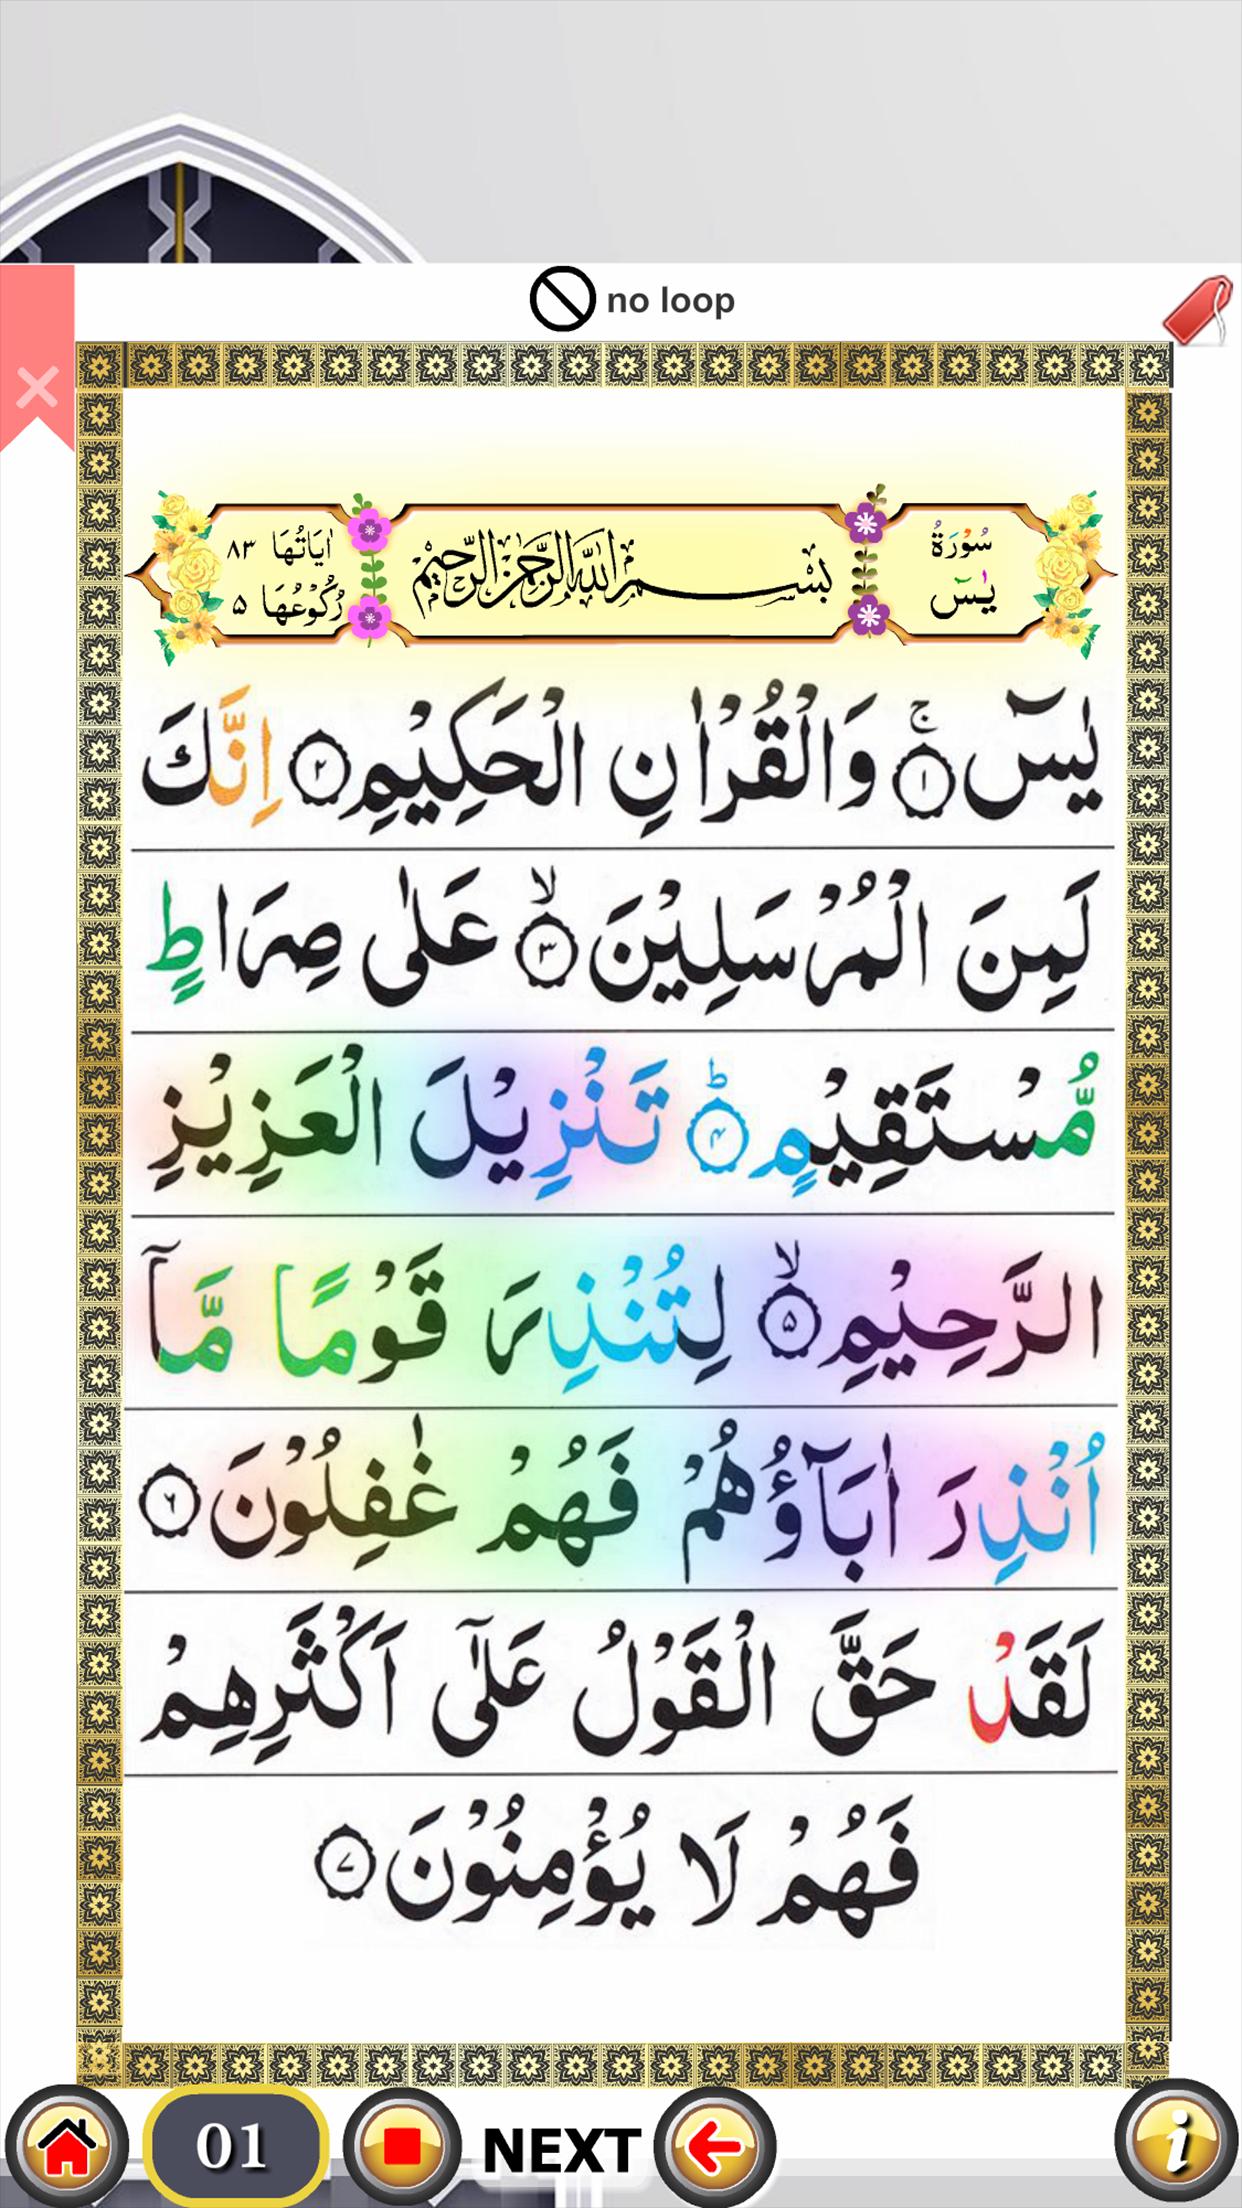 no loop
سُوْرَةُ
يٰسٓ
بِسْمِ اللّٰهِ الرَّحْمٰنِ الرَّحِيْمِ
اٰيَاتُهَا ٨٣
رُكُوْعُهَا ۵
يٰسٓ ۚ﴿١﴾ وَالْقُرْاٰنِ الْحَكِيْمِ ﴿٢﴾ اِنَّكَ
لَمِنَ الْمُرْسَلِيْنَ ۙ﴿٣﴾ عَلٰى صِرَاطٍ
مُّسْتَقِيْمٍ ؕ﴿۴﴾ تَنْزِيْلَ الْعَزِيْزِ
الرَّحِيْمِ ۙ﴿۵﴾ لِتُنْذِرَ قَوْمًا مَّاۤ
اُنْذِرَ اٰبَآؤُهُمْ فَهُمْ غٰفِلُوْنَ ﴿۶﴾
لَقَدْ حَقَّ الْقَوْلُ عَلٰۤى اَكْثَرِهِمْ
فَهُمْ لَا يُؤْمِنُوْنَ ﴿۷﴾
01 NEXT
i